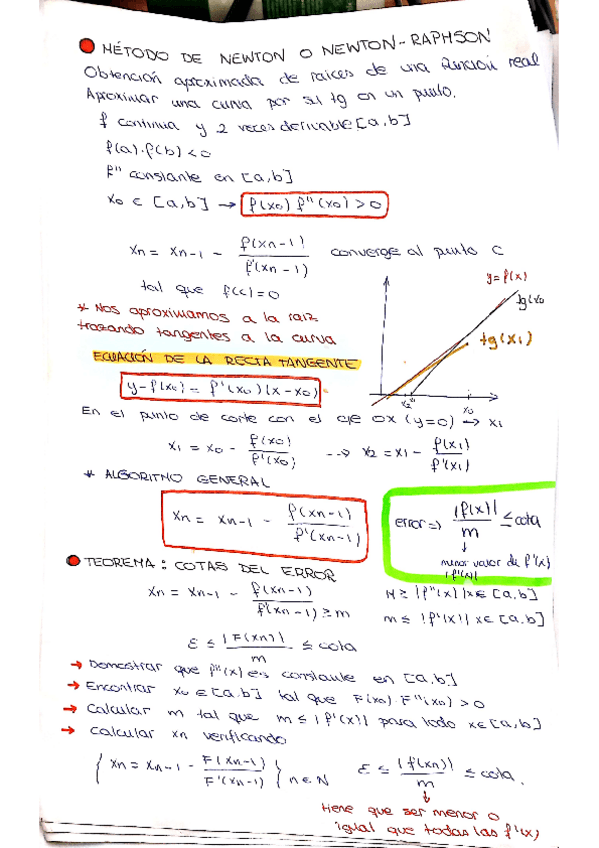 MÉTODO DE NEWTON O NEWTON-RAPHSON
Obtención aproximada de raices de una función real
Aproximar una curva por su tg en un punto.
f continua y 2 veces derivable [a,b]
f(a).f(b)<0
f'' constante en [a,b]
x0 ∈ [a,b] → f(x0) f''(x0) > 0
xn = xn-1 - f(xn-1) / f'(xn-1) converge al punto c
tal que f(c)=0
y=f(x)
tg(x0
tg(x1)
x2
x0
* Nos aproximamos a la raiz
trazando tangentes a la curva
ECUACIÓN DE LA RECTA TANGENTE
y-f(x0) = f'(x0)(x-x0)
En el punto de corte con el eje OX (y=0) → x1
x1 = x0 - f(x0) / f'(x0) --→ x2 = x1 - f(x1) / f'(x1)
* ALGORITMO GENERAL
xn = xn-1 - f(xn-1) / f'(xn-1)
error => |f(x)| / m ≤ cota
↓
menor valor de f'(x)
|f'(x)|
TEOREMA: COTAS DEL ERROR
xn = xn-1 - f(xn-1) / f'(xn-1) ≥ m
M ≥ |f''(x)| x∈ [a,b]
m ≤ |f'(x)| x∈ [a,b]
ε ≤ |F(xn)| / m ≤ cota
→ Demostrar que f''(x) es constante en [a,b]
→ Encontrar x0 ∈ [a,b] tal que F(x0).F''(x0) > 0
→ Calcular m tal que m ≤ |f'(x)| para todo x∈[a,b]
→ Calcular xn verificando
{ xn = xn-1 - F(xn-1) / F'(xn-1) } n∈N ε ≤ |f(xn)| / m ≤ cota.
↓
tiene que ser menor o
igual que todas las f'(x)